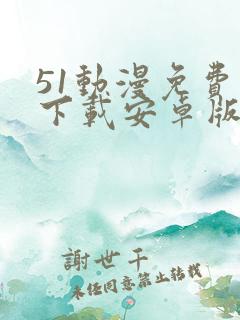 51動漫免費
下載安卓版
謝世千
未經同意禁止轉載